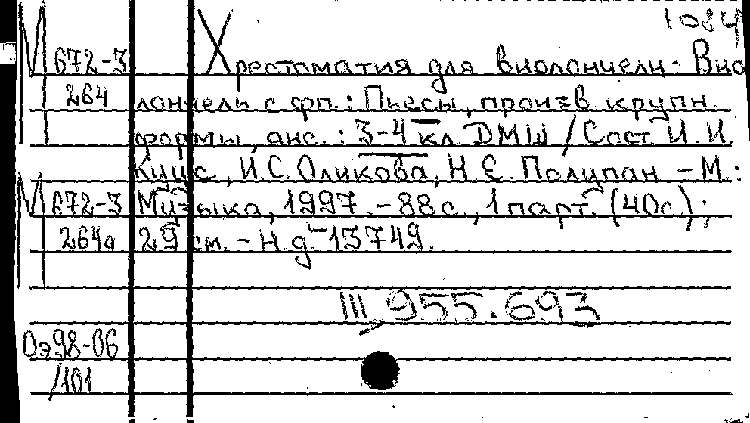 1084
М 672-3 Хрестоматия для виолончели. Вио
264 лончель с фп.: Пьесы, произв. крупн.
формы, анс.: 3-4 кл. ДМШ / Сост. И. И.
Куус, И.С. Оликова, Н.Е. Полупан. – М.:
М 672-3 Музыка, 1997. – 88с., 1 парт. (40с.);
264а 29 см. – Н.д. 13749.
III 955.693
Оэ98-06
/101